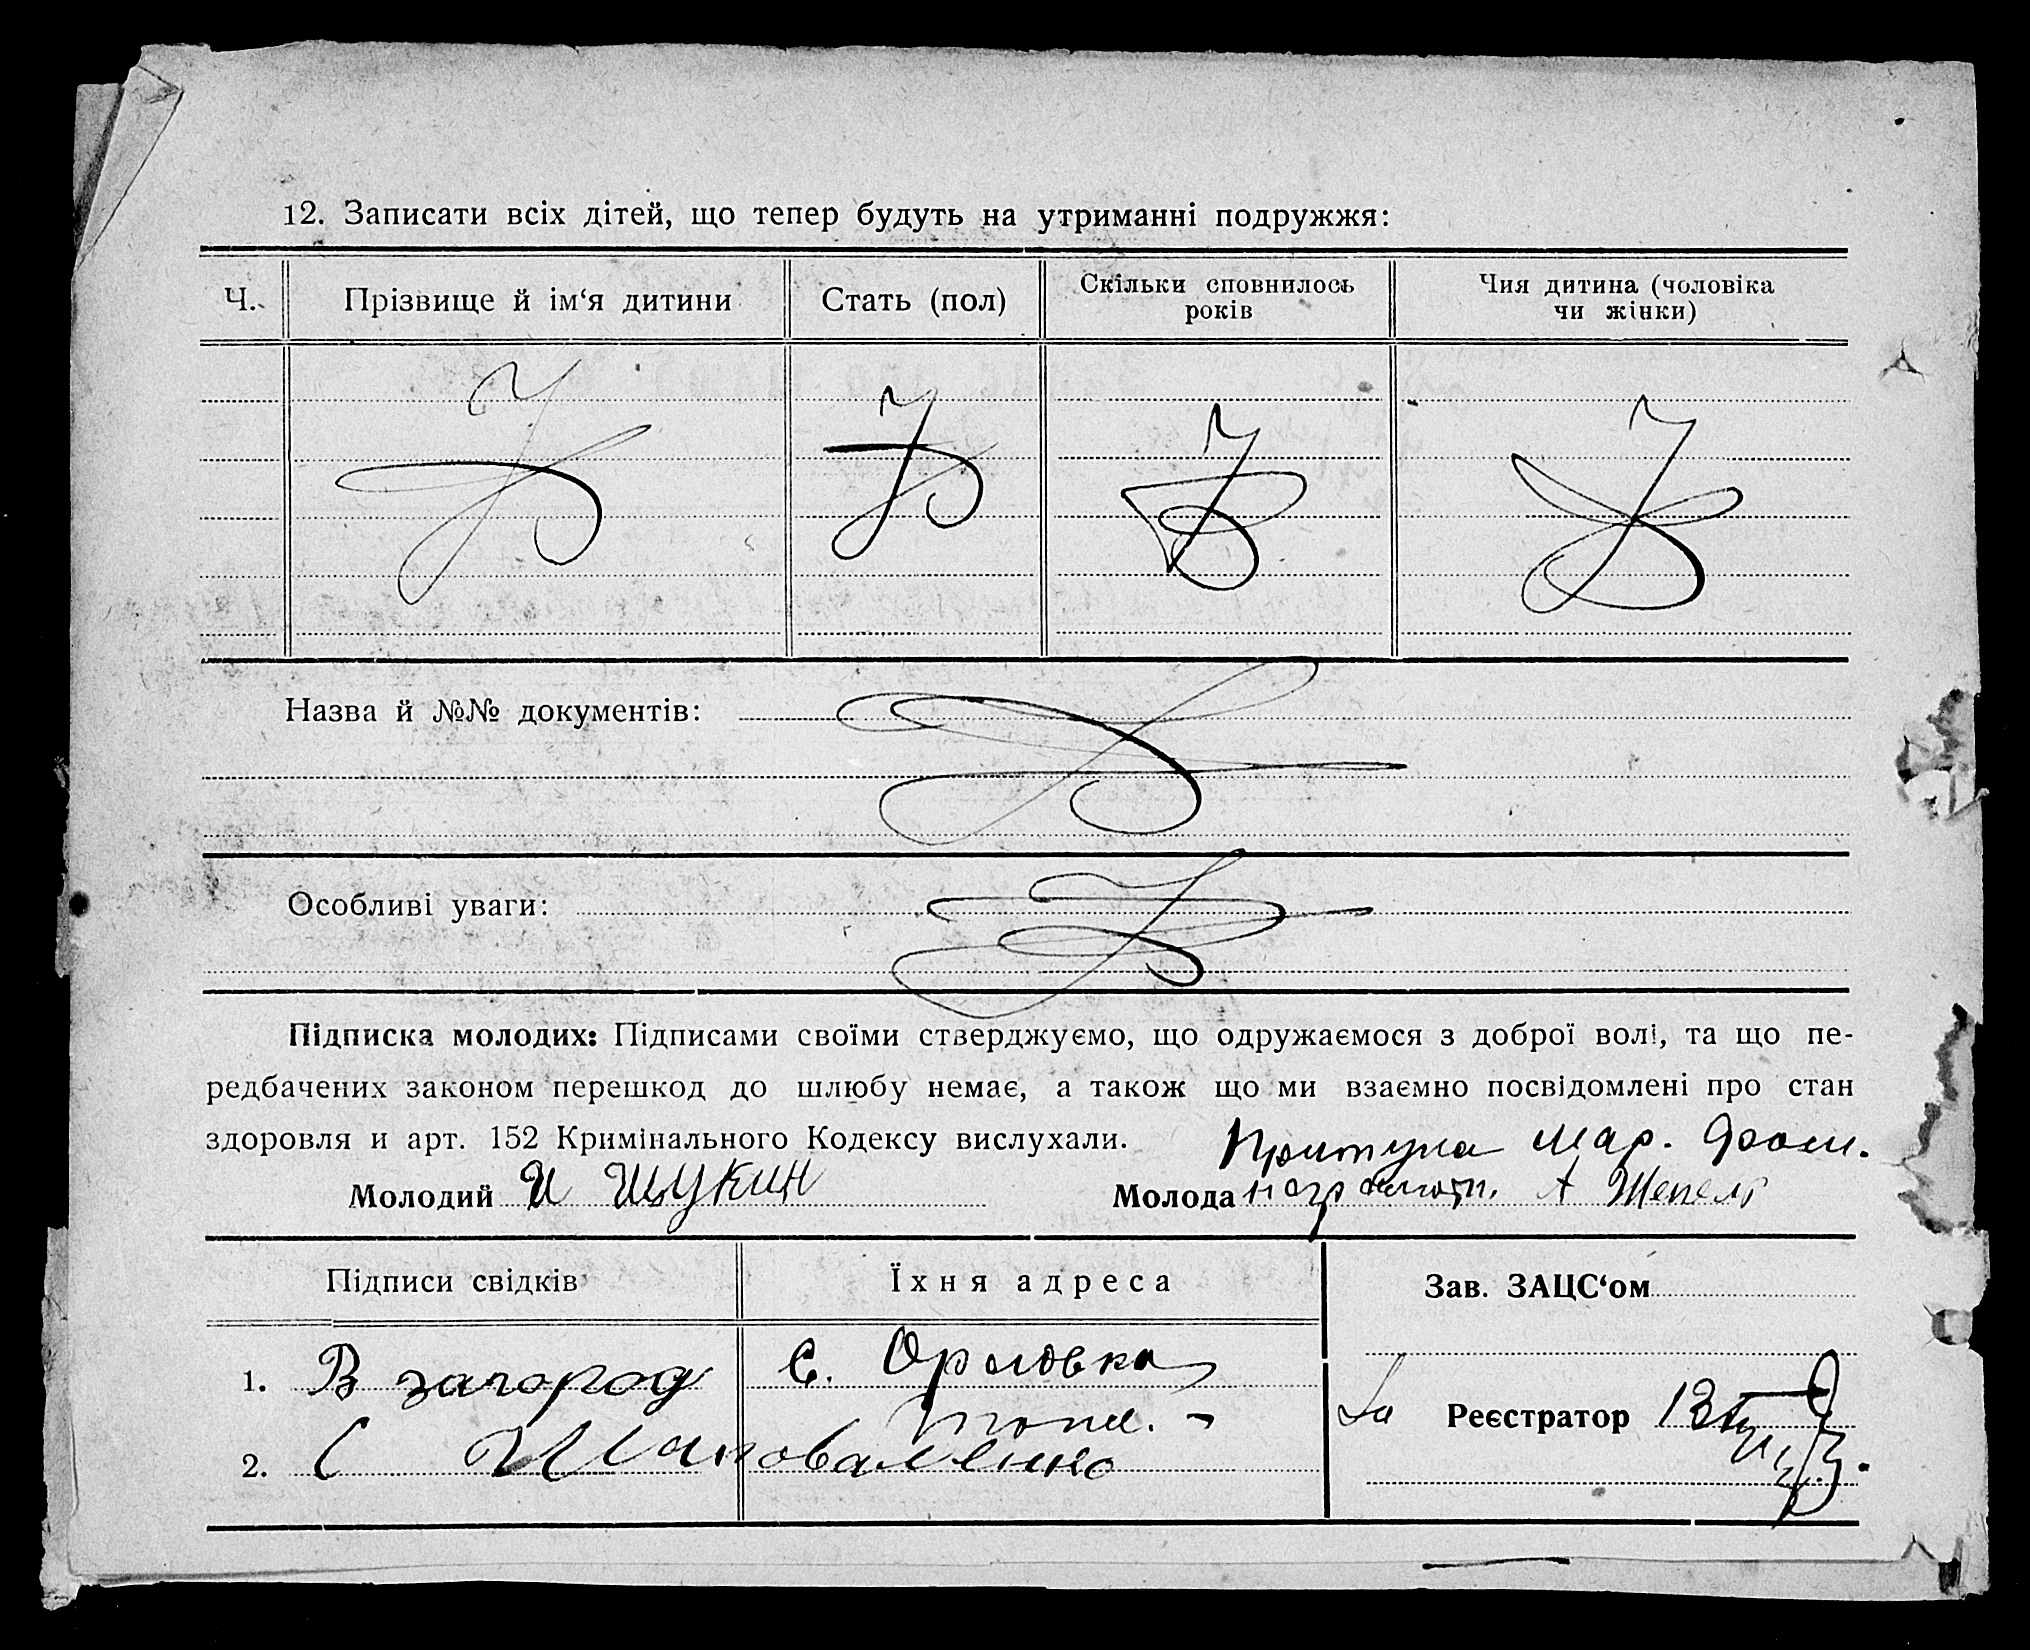 12. Записати всіх дітей, що тепер будуть на утриманні подружжя:
Ч.
Прізвище й ім‘я дитини
Стать (пол)
Скільки сповнилось
років
Чия дитина (чоловіка
чи жінки)
Назва й №№ документів:
Особливі уваги:
Підписка молодих: Підписами своїми стверджуємо, що одружаємося з доброї волі, та що пе-
редбачених законом перешкод до шлюбу немає, а також що ми взаємно посвідомлені про стан
здоровля и арт. 152 Кримінального Кодексу вислухали.
Притула Мар.
Молодий И Щукин
Молода А
Підписи свідків
Їхня адреса
Зав. ЗАЦС‘ом
1. В загород
С. Орловка
За Реєстратор
2. С Шаповаленко